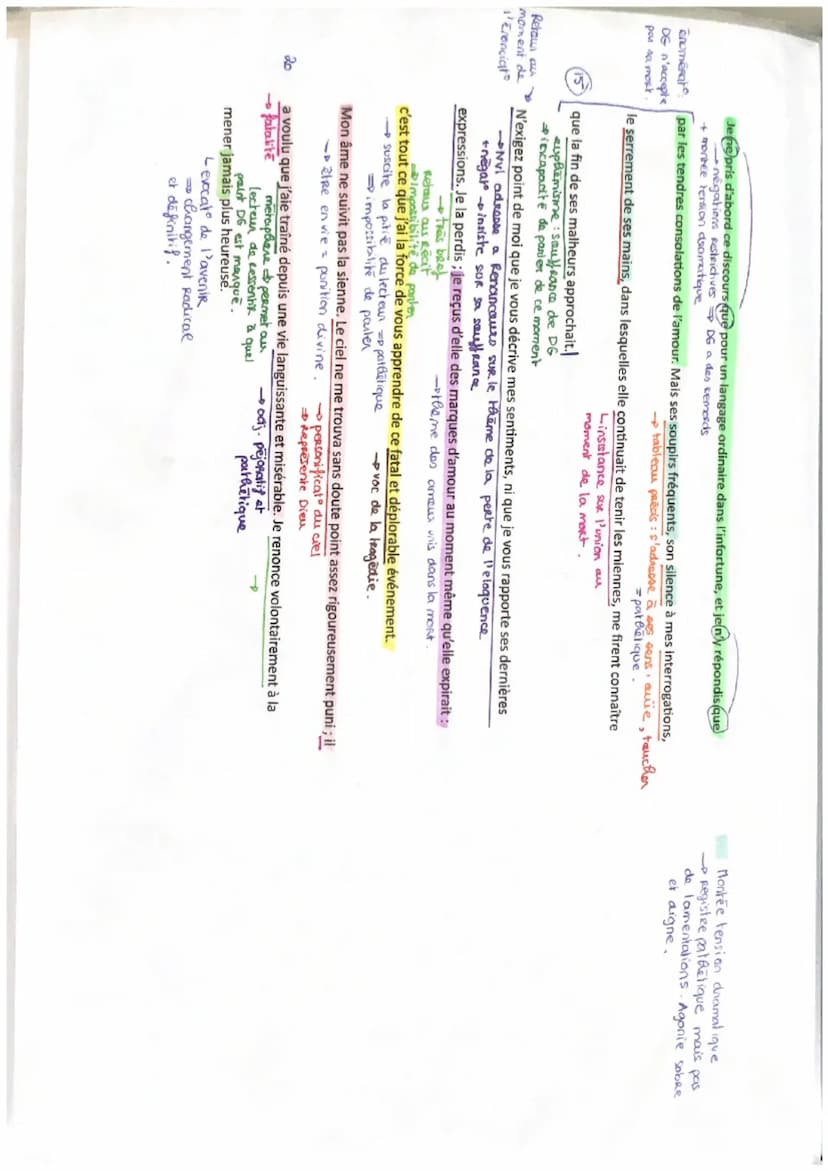 Je ne pris d'abord ce discours que pour un langage ordinaire dans l'infortune, et je n'y répondis que
→ négations restrictives ⇒ DG a des remords
+ montée tension dramatique
énumérat°
DG n'accepte
pas sa mort.
par les tendres consolations de l'amour. Mais ses soupirs fréquents, son silence à mes interrogations,
→ tableau précis : s'adresse à ses sens : ouïe, toucher
= pathétique.
le serrement de ses mains, dans lesquelles elle continuait de tenir les miennes, me firent connaître
↳ insistance sur l'union au
moment de la mort.
15
que la fin de ses malheurs approchait.
euphémisme : souffrance de DG
⇒ incapacité de parler de ce moment
Retour au
moment de
l'énonciat°
N'exigez point de moi que je vous décrive mes sentiments, ni que je vous rapporte ses dernières
→ Nvl adresse à Renoncourt sur le thème de la perte de l'éloquence
+ négat° → insiste sur sa souffrance
expressions. Je la perdis ; je reçus d'elle des marques d'amour au moment même qu'elle expirait :
→ très bref
Retour au récit
→ thème des amours unis dans la mort.
⇒ Impossibilité de parler
c'est tout ce que j'ai la force de vous apprendre de ce fatal et déplorable événement.
→ suscite la pitié du lecteur ⇒ pathétique
⇒ impossibilité de parler
→ voc de la tragédie.
Mon âme ne suivit pas la sienne. Le ciel ne me trouva sans doute point assez rigoureusement puni ; il
→ être en vie = punition divine.
→ personnificat° du ciel
⇒ Représente Dieu
20
a voulu que j'aie traîné depuis une vie languissante et misérable. Je renonce volontairement à la
→ fatalité
métaphore ⇒ permet au
lecteur de ressentir à quel
point DG est marqué.
→ adj. péjoratif et
pathétique
→
mener jamais plus heureuse.
↳ évocat° de l'avenir
⇒ changement radical
et définitif.
Montée tension dramatique
→ Registre pathétique mais pas
de lamentations. Agonie sobre
et digne.